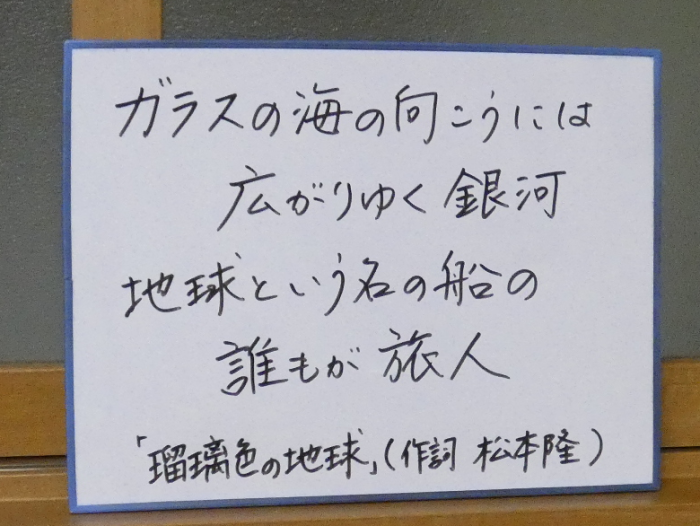 ガラスの海の向こうには
広がりゆく銀河
地球という名の船の
誰もが旅人
「瑠璃色の地球」(作詞 松本隆)